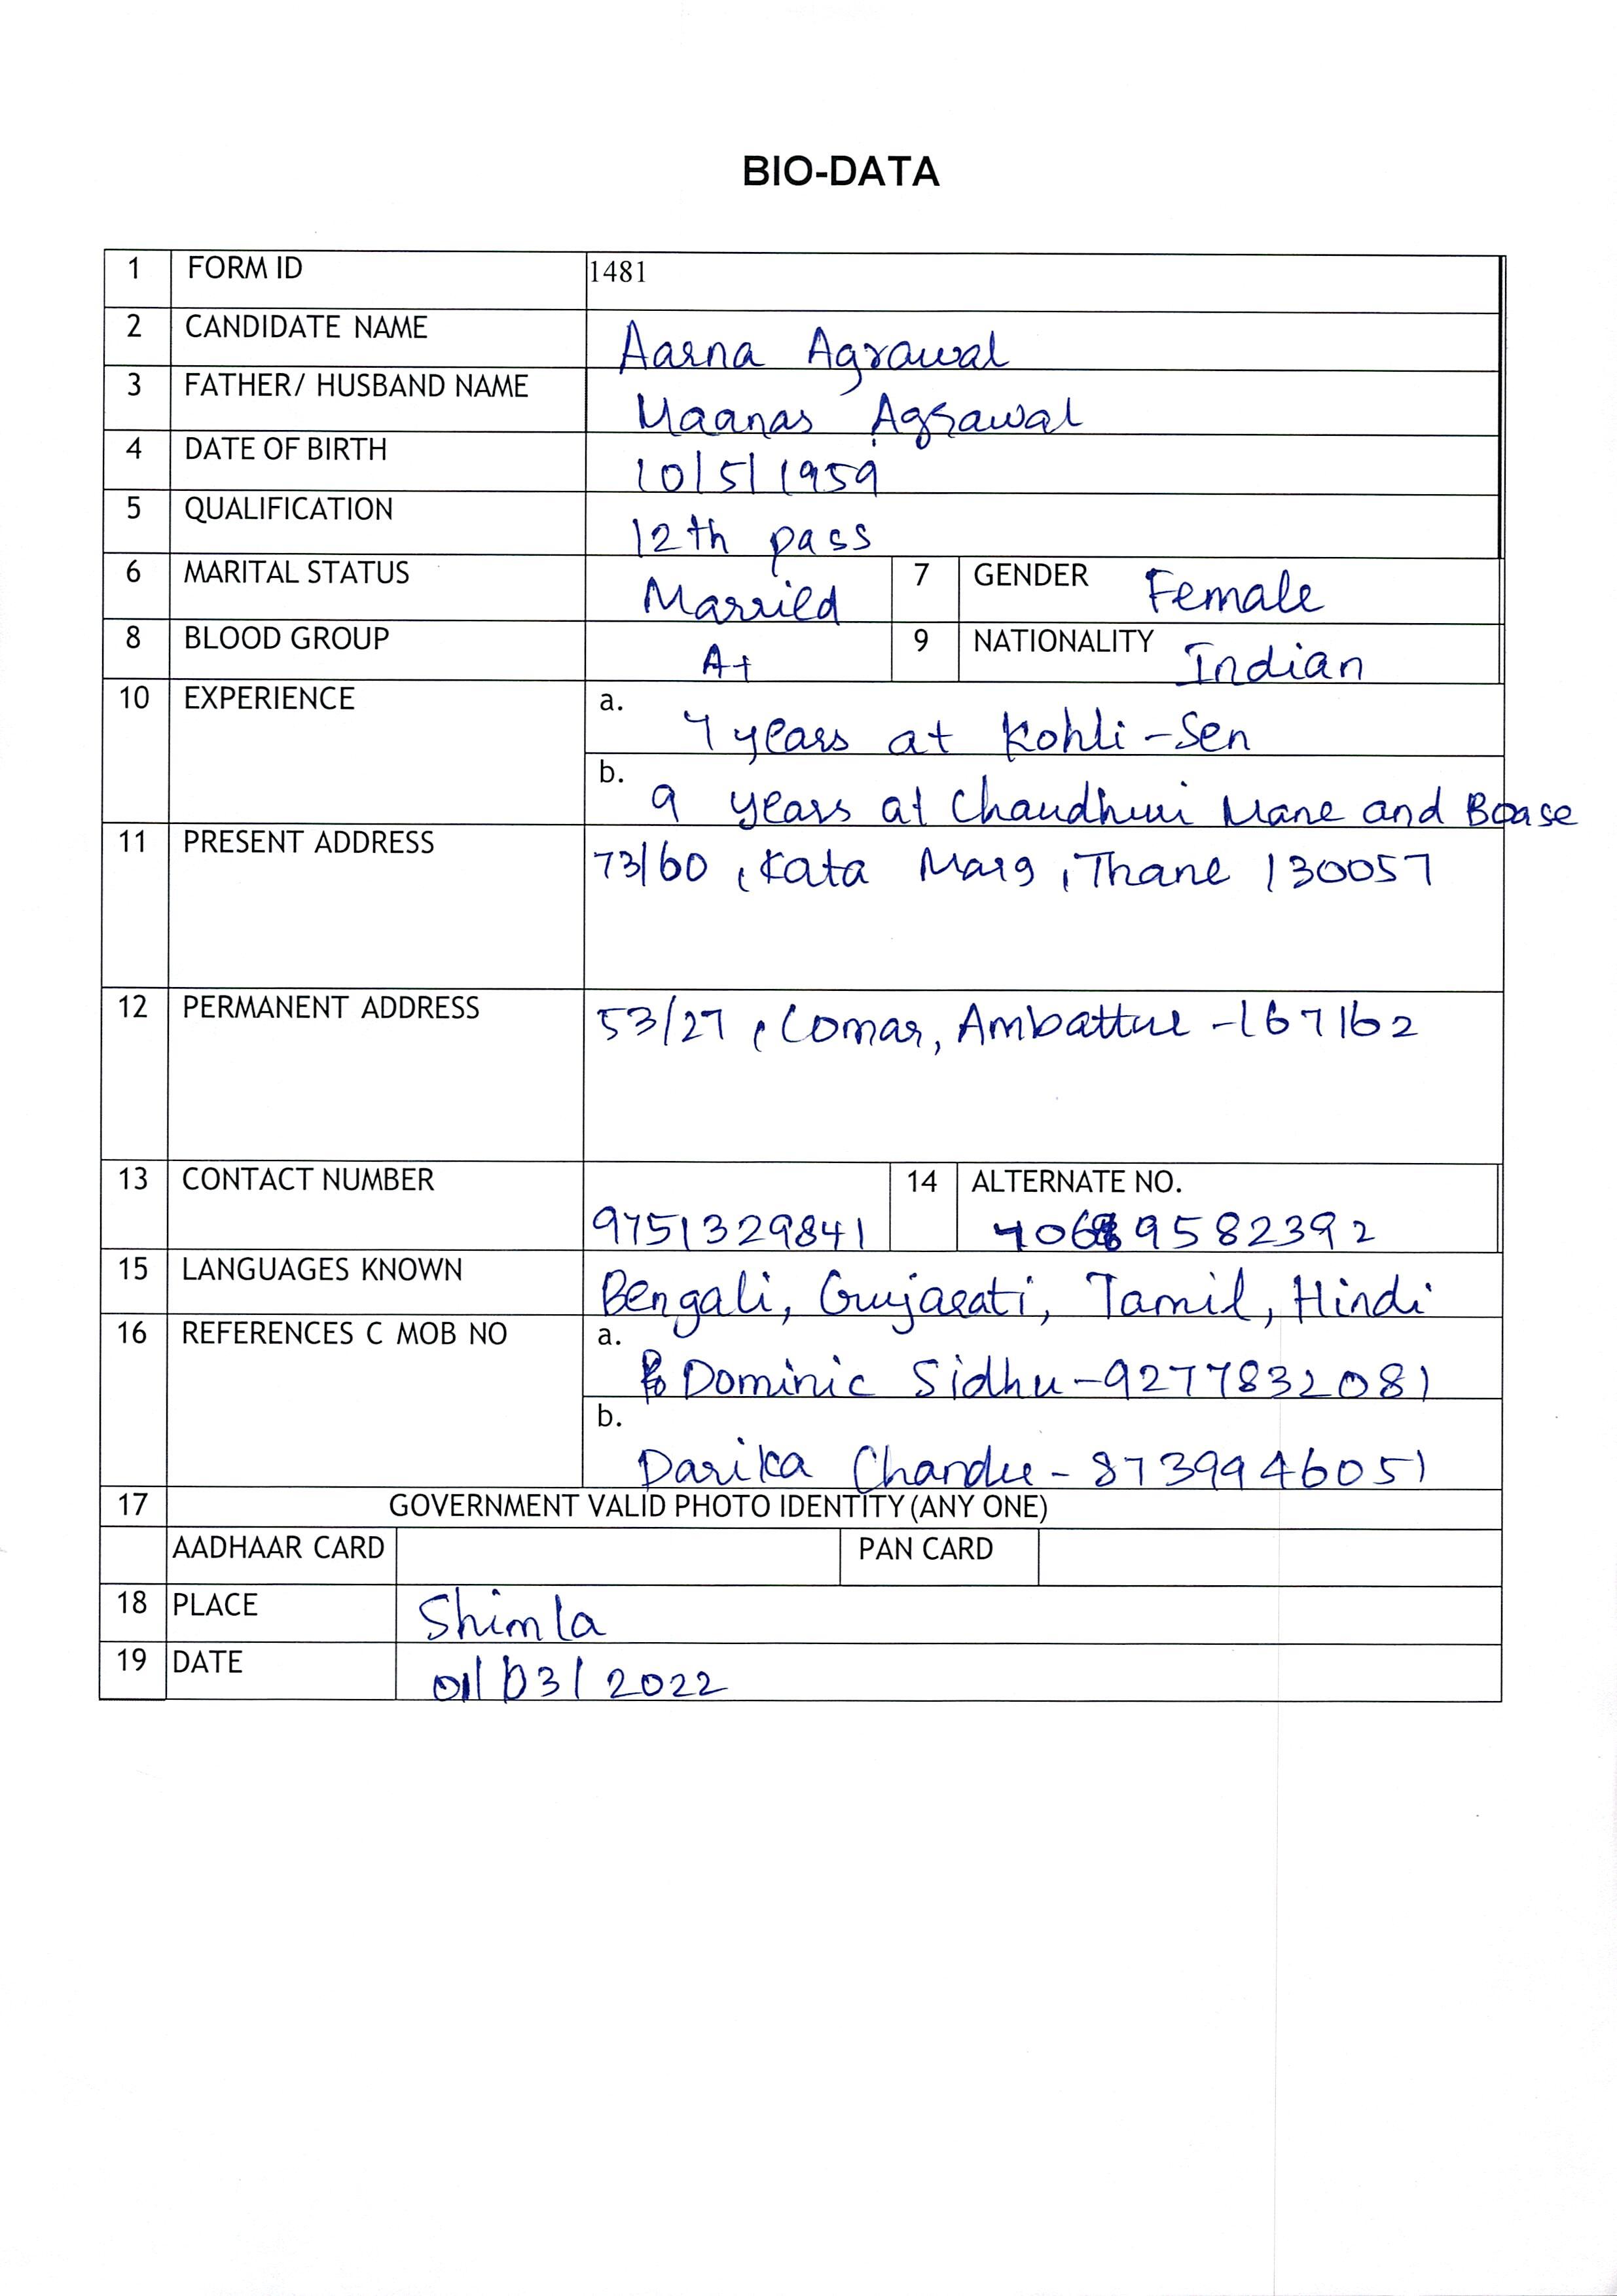 BIO-DATA
1 FORM ID 1481
2 CANDIDATE NAME Aarna Agrawal
3 FATHER/ HUSBAND NAME Maanas Agrawal
4 DATE OF BIRTH 10/5/1959
5 QUALIFICATION 12th pass
6 MARITAL STATUS Married 7 GENDER Female
8 BLOOD GROUP A+ 9 NATIONALITY Indian
10 EXPERIENCE a. 7 years at Kohli-Sen
b. 9 years at Chaudhuri Mane and Boase
11 PRESENT ADDRESS 73/60, Kata Marg, Thane 130057
12 PERMANENT ADDRESS 53/27, Comar, Ambattur -167162
13 CONTACT NUMBER 9751329841 14 ALTERNATE NO.
15 LANGUAGES KNOWN Bengali, Gujarati, Tamil, Hindi
16 REFERENCES C MOB NO a. Dominic Sidhu-9277832081
b. Darika Chander- 8739946051
17 GOVERNMENT VALID PHOTO IDENTITY (ANY ONE)
AADHAAR CARD PAN CARD
18 PLACE Shimla
19 DATE 01/03/2022